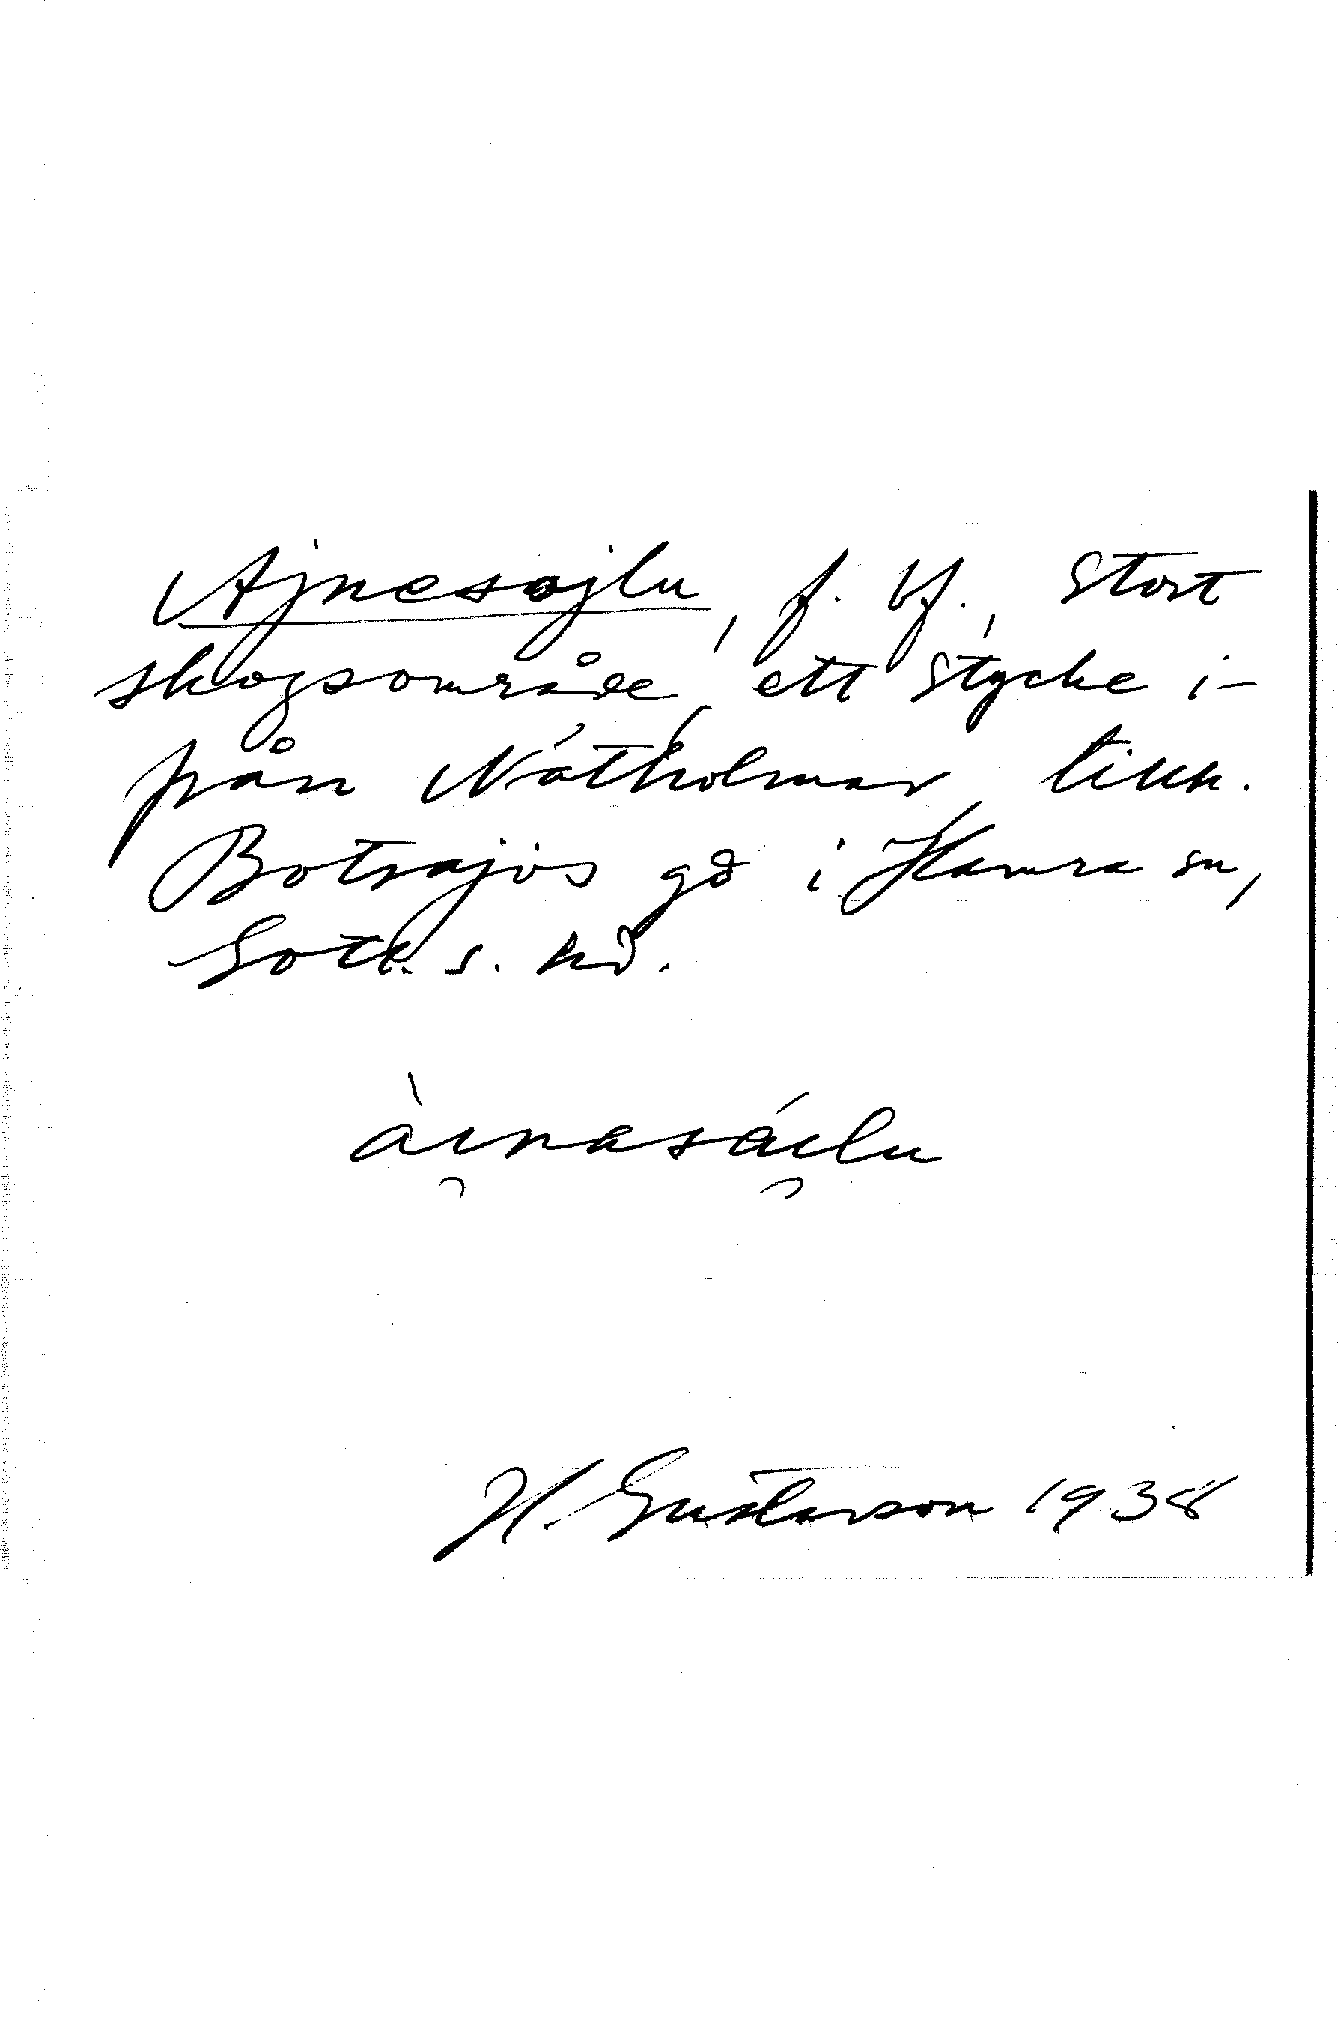 Ajnesojlu, f. Uf., Stort
skogsområde ett stycke i-
från Nátholmar, tillh.
Botvajds gd i Hamra sn,
Gotl. s. hd.
àɪ̯nasáɪ̯lu
H. Gustavson 1938